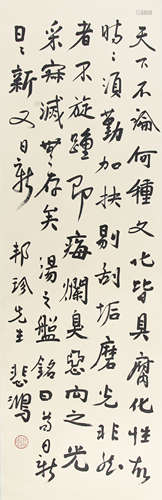 天下不論何種文化皆具腐化性故
時時須勤加抉剔刮垢磨光非然
者不旋踵即瘍爛臭惡向之光
采寂滅無存矣湯之盤銘曰苟日新
日日新又日新
邦珍先生 悲鴻